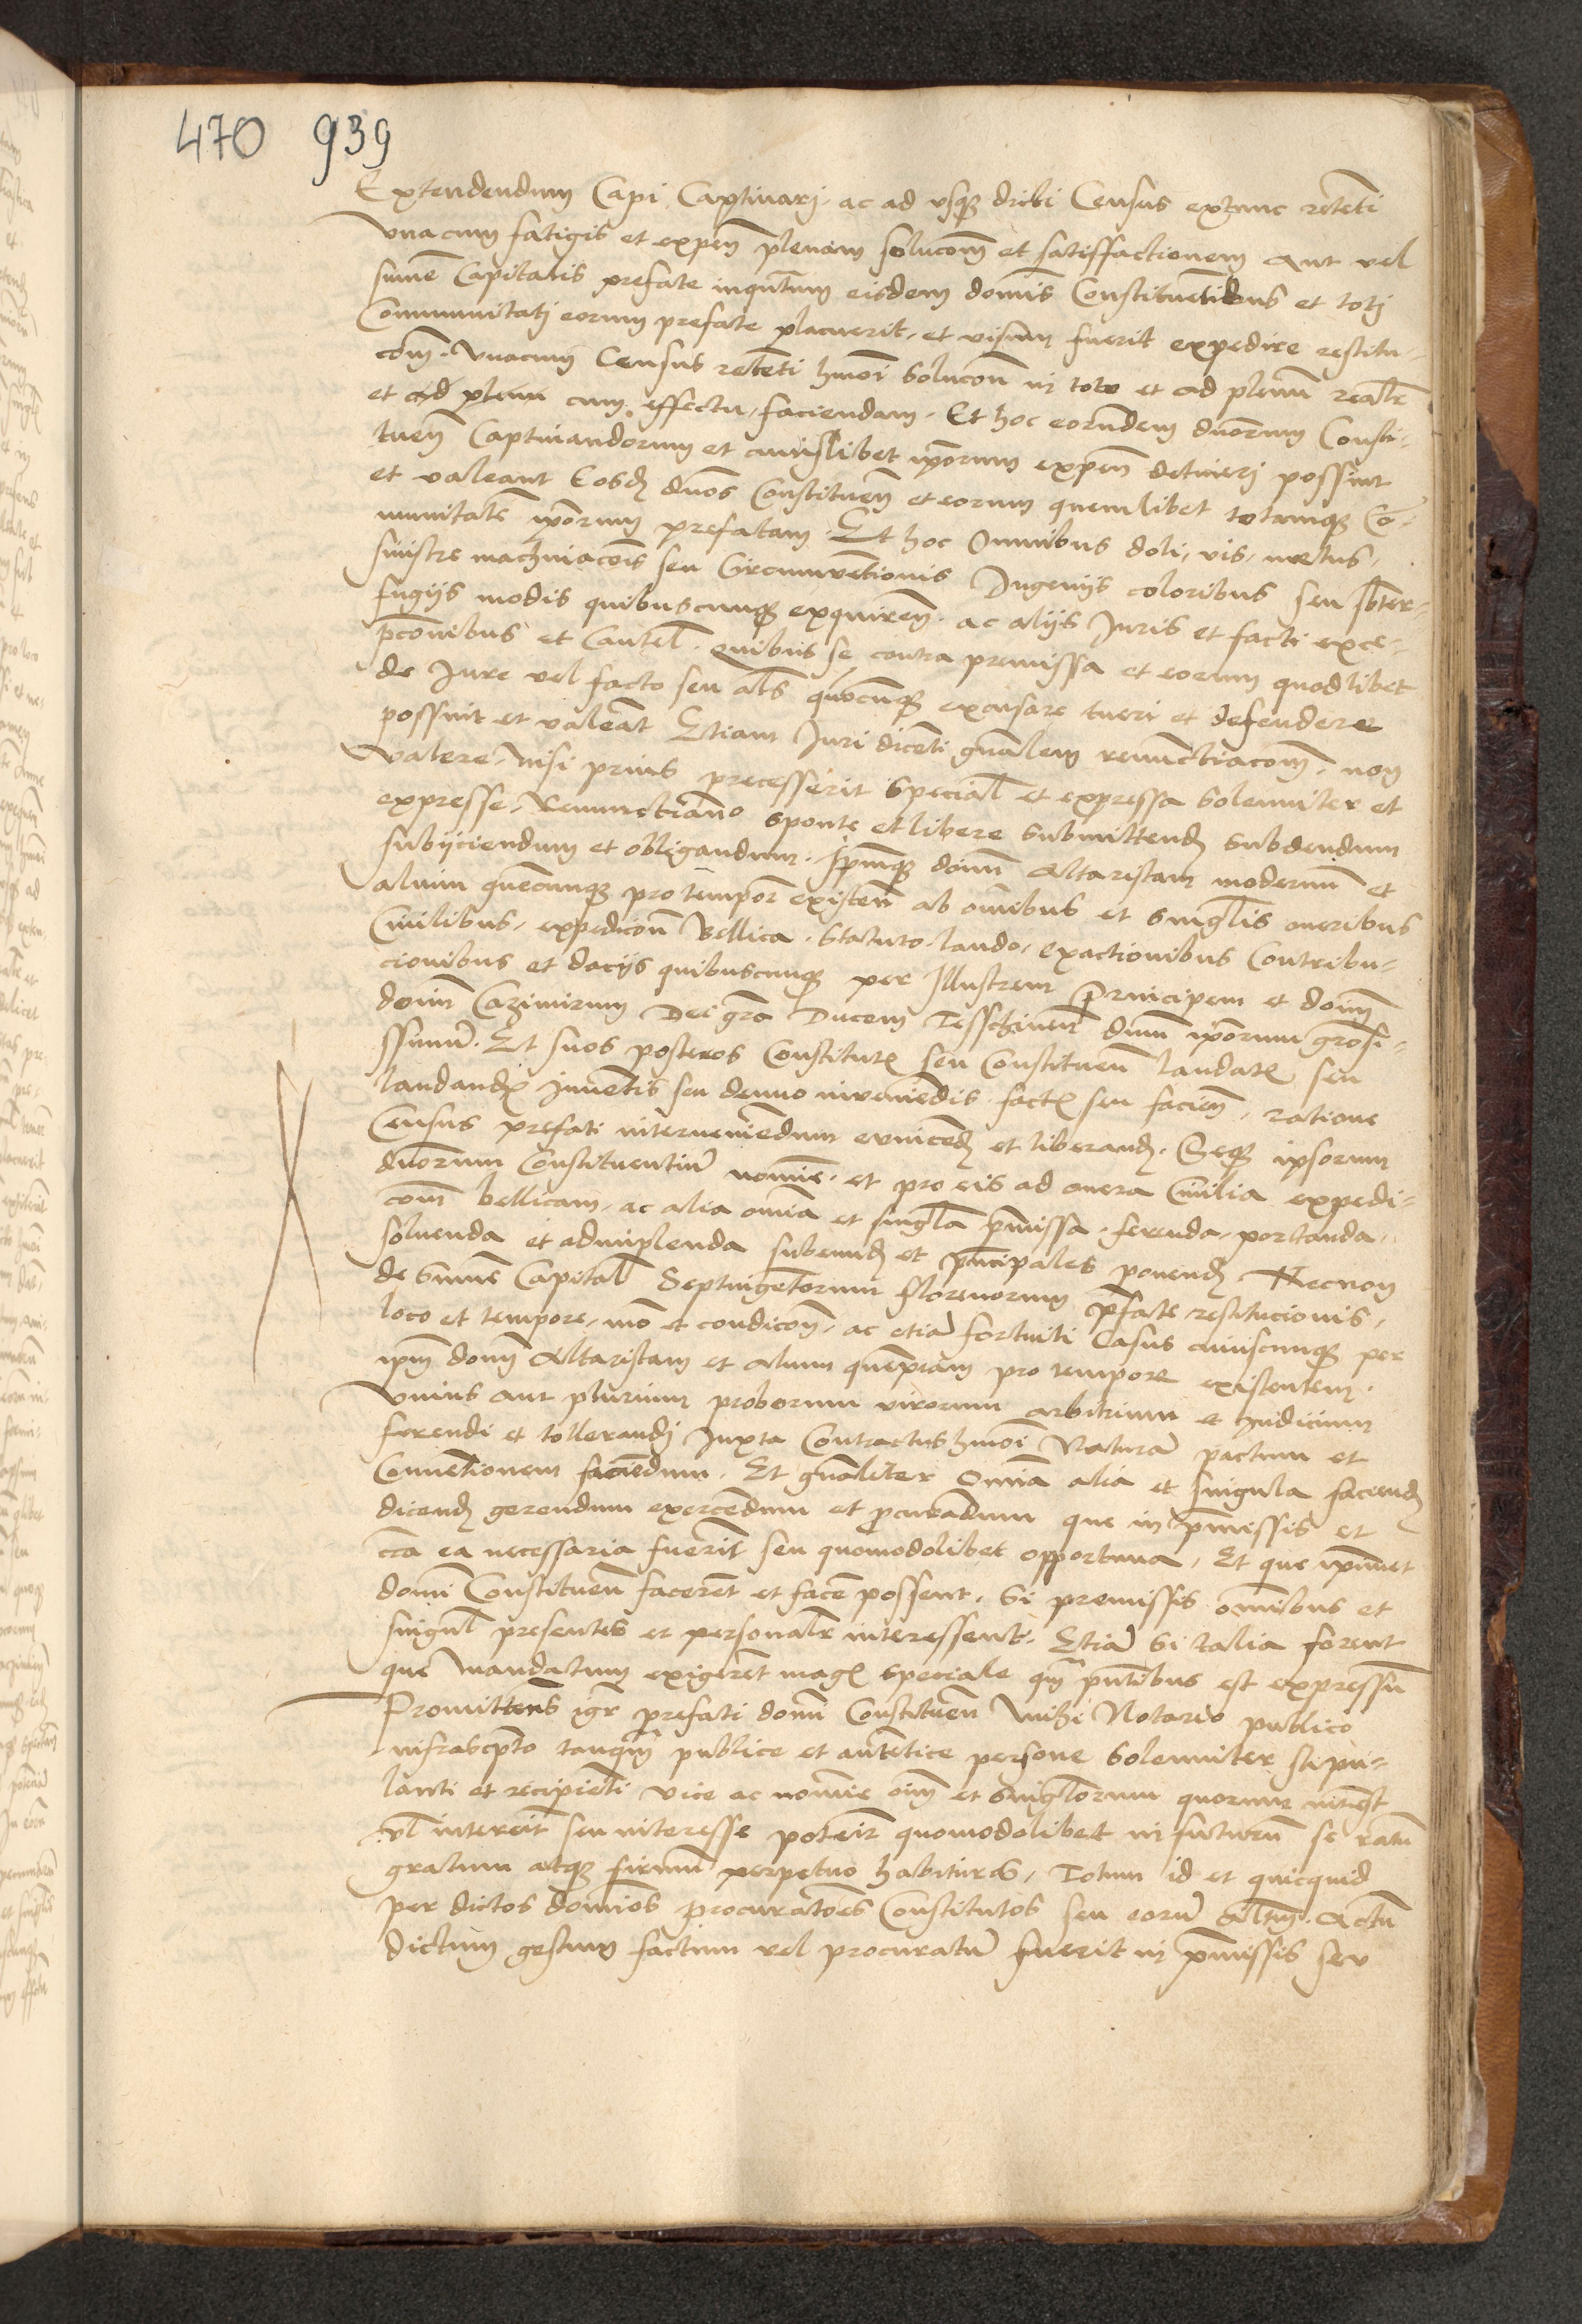 470 939
Extendendum Capi Captivari. ac ad vsque dicti Census extunc retenti
vnacum fatigis et expen̄ plenam solucom̄ et satisfactionem aut vel
sum̄e Capitalis prefate inquantum eisdem dom̄is Constituentibus et totj
Communitatj eorum prefate placuerit. et visum fuerit expedire restitu-
com̄. vnacum Census retenti hmoi solucom̄ in toto et ad plenū realr
et ad plenū cum effectu faciendam. Et hoc eorundem dnorum Consti-
tuen̄ Captiuandorum et cuiuslibet ip̄orum expen̄ detineri possint
et valeant Eosd̄ dnos Constituen̄ et eorum quemlibet totamque Cō-
munitatē ip̄orum prefatam. Et hoc Omnibus doli, vis, metus,
sinistre machinacois̄ seu Circumuētionis Ingenijs coloribus seu sbter-
fugijs modis quibuscunque exquiren̄. ac alijs Juris et facti exce-
pc̄onibus et Cautel̄. quibus se contra premissa et eorum quodlibet
de Jure vel facto seu als̄ quocunque excusare tueri et defendere
possint et valeāt Etiam Juri dicenti gn̄alem renunctiacom̄. non
valere, nisi prius precesserit special̄ et expressa solenniter et
expresse, Renunctian̄o sponte et libere submittend̄ subdendum
subijciendum et obligandum. Ip̄mque dom̄ Altaristam modernū et
alium quēcunque pro tempor̄ existen̄ ab om̄ibus et singl̄is oneribus
Ciuilibus, expedicom̄ Bellica. Statuto. laudo, exactionibus Contribu-
cionibus et dacijs quibuscunque per Illustrem Principem et dom̄
dom̄ Cazimirum Dei gr̄a Ducem Tesschinen̄ dnm̄ ip̄orum gr̄osi-
ssimū. Et suos posteros Constitut̄ seu Constituen̄ laudat̄ seu
laudand̄ Inuētis seu denuo inueniēdis fact̄ seu facien̄, ratione
Census prefati interueniēdum euincēd̄ et liberand̄. Seque ipsorum
dnorum Constituentiū nomīe. et pro eis ad onera Ciuilia expedi-
com̄ bellicam, ac alia om̄ia et singl̄a p̄missa. ferenda, portanda,
soluenda et adimplenda subeund̄ et p̄ncipales ponend̄ Necnon
de Sum̄e Capital̄ Septingētorum florenorum p̄fate, restitucionis,
loco et tempore, mō et condicom̄, ac etiā fortuiti Casus cuiuscunque per
ip̄m dom̄ Altaristam et alium quēpiam pro tempore existentem.
vnius aut plurium proborum virorum arbitrium et Judicium
ferendi et tollerandj Juxta Contractus hmoi Naturā pactum et
Conuētionem faciēdum. Et gn̄aliter Om̄ia alia et singula faciend̄
dicend̄ gerendum exercendum et p̄curādum que in p̄missis et
cc̄a ea necessaria fuerint̄ seu quomodolibet opportuna. Et que ip̄imet
dom̄i Constituen̄ facerēt et facē possent. Si premissis om̄ibus et
singul̄ presentes et personalr̄ interessent. Etiā si talia forent
que mandatum exigerēt maḡ speciale qm̄ pn̄tibus est expressū
Promittens igr̄ prefati dom̄i Constituen̄ mihi Notario publico
infrascp̄to tanqm̄ publice et autētice persone solenniter stipu-
lanti et recipiēti vice ac nomīe oīm et singl̄orum quorum intēst
vl̄ intererit seu interesse poterit quomodolibet in futurū se ratū
gratum atque firmū perpetuo habituros, Totum id et quicquid
per dictos domīos procuratōes Constitutos seu eorū altm̄. Actū
dictum gestum factum vel procuratū fuerit in p̄missis seu